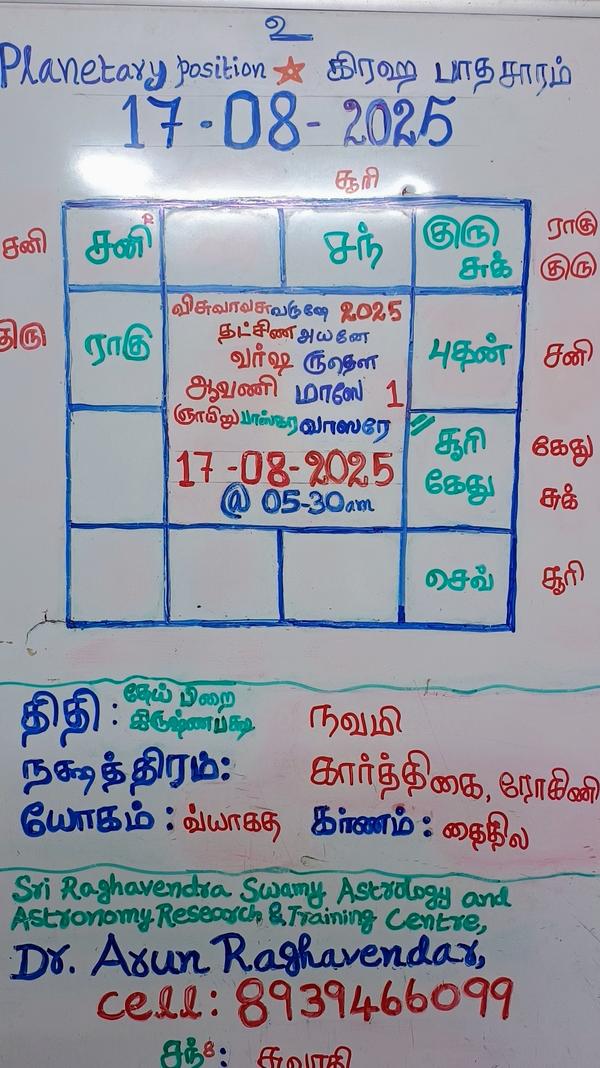 உ
Planetary position ☆ கிரஹ பாதசாரம்
17-08-2025
சூரி
சனி சனி வ சந் குரு சுக் ராகு குரு
ராகு புதன் சனி
விசுவாவசுவருஷே 2025
தட்சிண அயனே
வர்ஷ ருதௌ
ஆவணி மாஸே 1
ஞாயிறு பாஸ்கர வாஸரே
17-08-2025
@ 05-30am
சூரி கேது கேது சுக்
செவ் சூரி
திதி: தேய் பிறை கிருஷ்ணபக்ஷ நவமி
நக்ஷத்திரம்: கார்த்திகை, ரோகிணி
யோகம்: வ்யாகத கரணம்: தைதில
Sri Raghavendra Swamy Astrology and
Astronomy Research & Training Centre,
Dr. Arun Raghavendar,
Cell: 8939466099